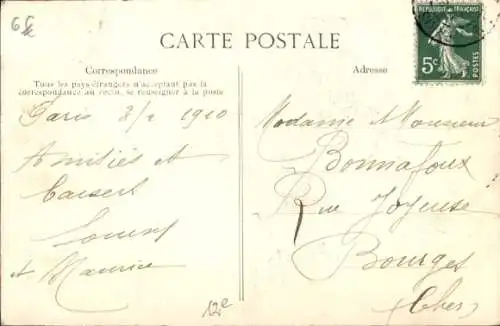 CARTE POSTALE
RÉPUBLIQUE FRANÇAISE
5c
Correspondance
Tous les pays étrangers n'acceptant pas la
correspondance au recto, se renseigner à la poste
Paris 3/2 1910
Amitiés et
baisers
et Maurice
Adresse
Madame et Monsieur
Bonnafoux
Rue Joyeuse
Bourges
(Cher)
12e